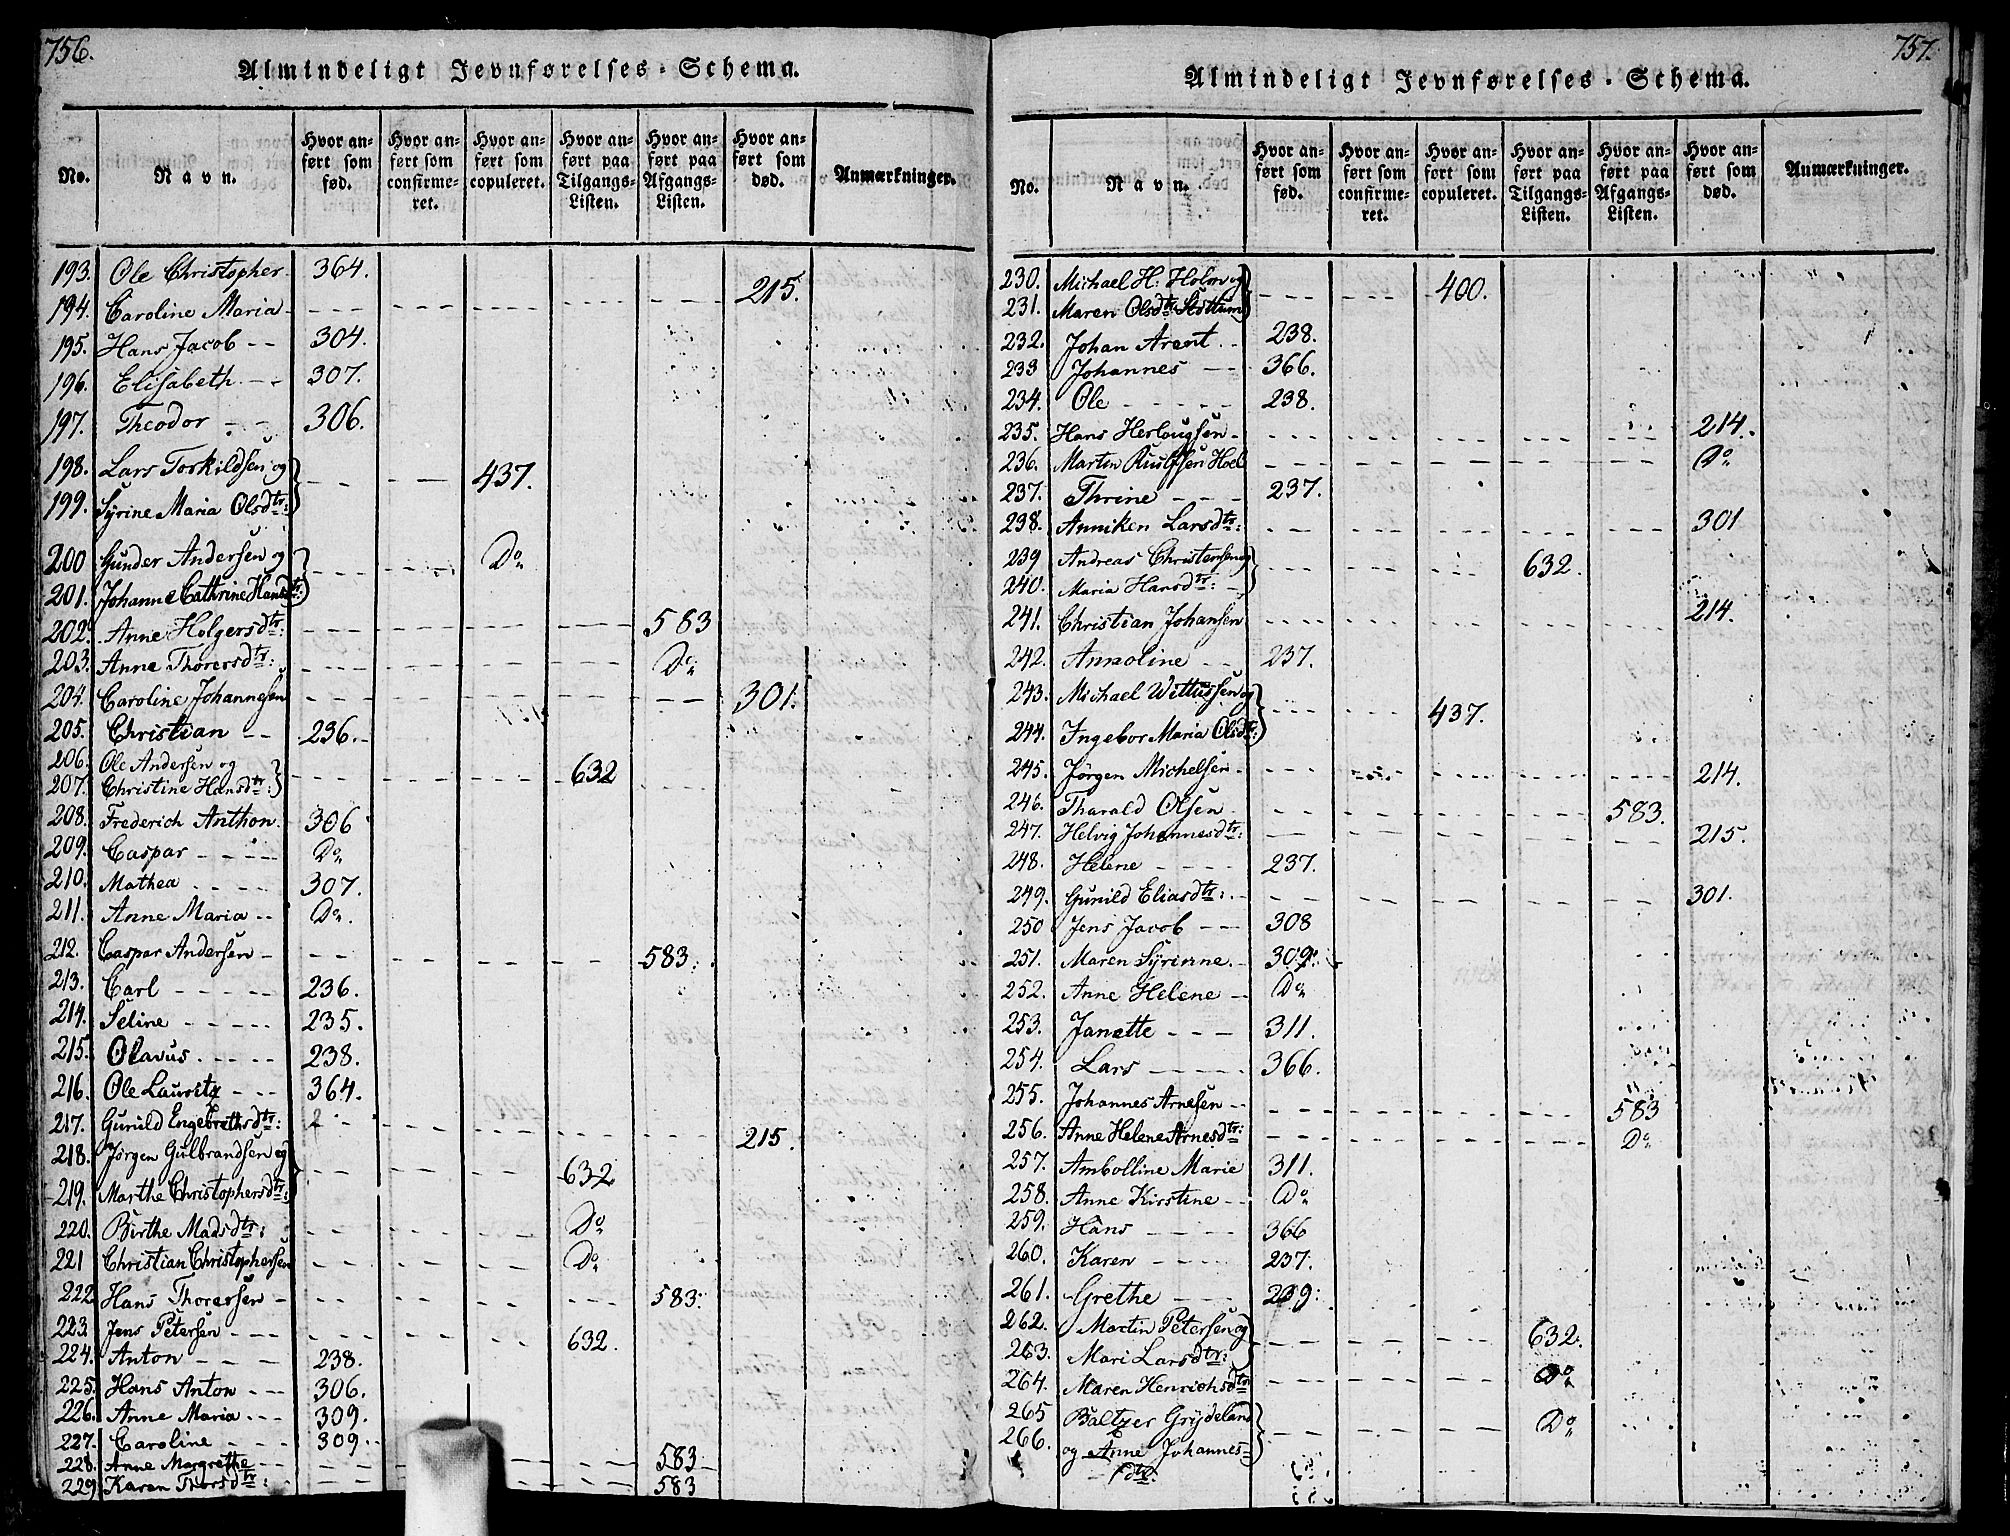 756.
Almindeligt Jevnførelses-Schema.
No. Navn. Hvor anført som fød. Hvor anført som confirmeret. Hvor anført som copuleret. Hvor anført paa Tilgangs-Listen. Hvor anført paa Afgangs-Listen. Hvor anført som død. Anmærkninger.
193. Ole Christopher 364.
194. Caroline Maria 215.
195. Hans Jacob 304.
196. Elisabeth 307.
197. Theodor 306.
198. Lars Torkildsen og
199. Syrine Maria Olsdtr: 437.
200 Gunder Andersen og
201. Johanne Cathrine Hansdtr: Do
202. Anne Holgersdtr: 583
203. Anne Thorersdtr: Do
204. Caroline Johannesen 301.
205. Christian 236.
206. Ole Andersen og
207. Christine Hansdtr: 632
208. Frederich Anthon. 306
209. Caspar Do
210. Mathea 307.
211. Anne Maria Do.
212. Caspar Andersen 583.
213. Carl 236.
214. Seline 235.
215. Olavus. 238.
216. Ole Lauritz 364.
217. Gunild Engebrethsdtr: 215.
218. Jørgen Gulbrandsen og
219. Marthe Christophersdtr: 632
220. Birthe Madsdtr: Do
221 Christian Christophersen Do
222 Hans Thoresen 583.
223. Jens Petersen 632.
224. Anton 238.
225. Hans Anton 306.
226. Anne Maria 309.
227. Caroline 309.
228. Anne Margrethe 583
229 Karen Thorsdtr: 583
757.
Almindeligt Jevnførelses-Schema.
No. Navn. Hvor anført som fød. Hvor anført som confirmeret. Hvor anført som copuleret. Hvor anført paa Tilgangs-Listen. Hvor anført paa Afgangs-Listen. Hvor anført som død. Anmærkninger.
230. Michael H: Holm og
231. Maren Olsdtr 400.
232. Johan Arent 238.
233 Johannes 366.
234. Ole 238.
235. Hans Herlougsen 214.
236. Martin Hoel Do
237. Thrine 237.
238. Anniken Larsdtr: 301
239 Andreas Christensen og
240. Maria Hansdtr: 632.
241. Christian Johansen 214.
242. Annoline 237.
243. Michael Wettussen og
244. Ingebor Maria Olsdtr: 437.
245. Jørgen Michelsen 214.
246. Tharald Olsen 583.
247. Helvig Johannesdtr: 215.
248. Helene 237.
249. Gunild Eliasdtr: 301.
250 Jens Jacob 308
251. Maren Syrinne. 309.
252. Anne Helene Do
253. Janette 311.
254. Lars 366.
255. Johannes Arnesen 583
256. Anne Helene Arnesdtr: Do
257. Ambolline Marie 311.
258. Anne Kirstine Do
259. Hans 366
260. Karen 237.
261. Grethe 239:
262. Martin Petersen og
263. Mari Larsdtr: 632.
264. Maren Henrichsdtr Do
265 Baltzer Grydeland
266. og Anne Johannes- Do
dtr: